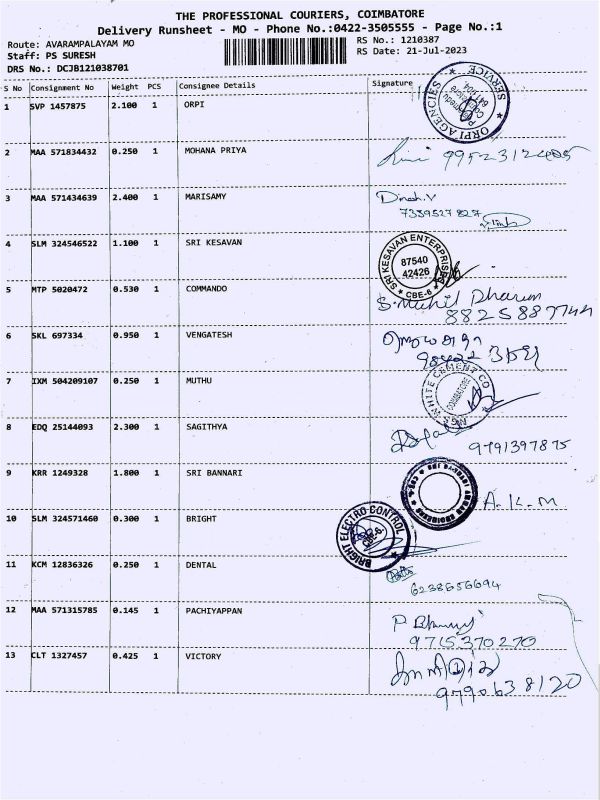 THE PROFESSIONAL COURIERS, COIMBATORE
Delivery Runsheet - MO - Phone No.:0422-3505555 - Page No.:1
Route: AVARAMPALAYAM MO
RS No.: 1210387
Staff: PS SURESH
RS Date: 21-Jul-2023
DRS No.: DCJB121038701
S No Consignment No Weight PCS Consignee Details Signature
1 SVP 1457875 2.100 1 ORPI
ORPI AGENCIES SERVICE
2 MAA 571834432 0.250 1 MOHANA PRIYA
3 MAA 571434639 2.400 1 MARISAMY
Dinesh.V
7339527827
4 SLM 324546522 1.100 1 SRI KESAVAN
SRI KESAVAN ENTERPRISES
87540
42426
CBE-6
5 MTP 5020472 0.530 1 COMMANDO
8825887744
6 SKL 697334 0.950 1 VENGATESH
7 IXM 504209107 0.250 1 MUTHU
WHITE CEMENT CO
COIMBATORE
8 EDQ 25144093 2.300 1 SAGITHYA
9791397875
9 KRR 1249328 1.800 1 SRI BANNARI
A.K.M
10 SLM 324571460 0.300 1 BRIGHT
BRIGHT ELECTRO CONTROL
CBE-6.
11 KCM 12836326 0.250 1 DENTAL
6238656694
12 MAA 571315785 0.145 1 PACHIYAPPAN
9715370270
13 CLT 1327457 0.425 1 VICTORY
9790638120